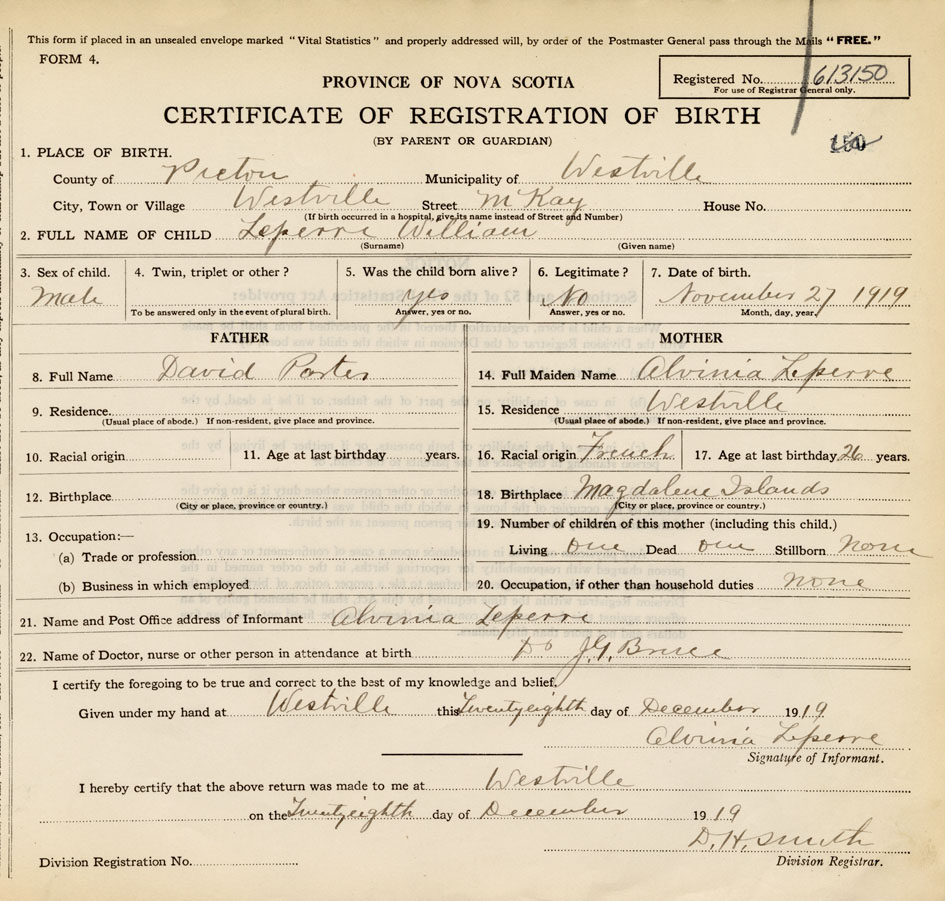 This form if placed in an unsealed envelope marked "Vital Statistics" and properly addressed will, by order of the Postmaster General pass through the Mails "FREE."
FORM 4.
PROVINCE OF NOVA SCOTIA
Registered No. 613150
For use of Registrar General only.
CERTIFICATE OF REGISTRATION OF BIRTH
(BY PARENT OR GUARDIAN)
1. PLACE OF BIRTH.
County of Picton Municipality of Westville
City, Town or Village Westville Street McKay House No.
(If birth occurred in a hospital, give its name instead of Street and Number)
2. FULL NAME OF CHILD Leperre William
(Surname) (Given name)
3. Sex of child. 4. Twin, triplet or other? 5. Was the child born alive? 6. Legitimate? 7. Date of birth.
Male yes No November 27 1919
To be answered only in the event of plural birth. Answer, yes or no. Answer, yes or no. Month, day, year,
FATHER MOTHER
8. Full Name David Porter 14. Full Maiden Name Alvinia Leperre
9. Residence. 15. Residence Westville
(Usual place of abode.) If non-resident, give place and province. (Usual place of abode.) If non-resident, give place and province.
10. Racial origin 11. Age at last birthday years. 16. Racial origin French 17. Age at last birthday 26 years.
12. Birthplace 18. Birthplace Magdalene Islands
(City or place, province or country.) (City or place, province or country.)
13. Occupation:— 19. Number of children of this mother (including this child.)
(a) Trade or profession Living One Dead one Stillborn None
(b) Business in which employed 20. Occupation, if other than household duties none
21. Name and Post Office address of Informant Alvinia Leperre
22. Name of Doctor, nurse or other person in attendance at birth Dr J.G. Bruce
I certify the foregoing to be true and correct to the best of my knowledge and belief.
Given under my hand at Westville this Twentyeighth day of December 1919.
Alvinia Leperre
Signature of Informant.
I hereby certify that the above return was made to me at Westville
on the Twentyeighth day of December 1919
D. H. Smith
Division Registration No. Division Registrar.